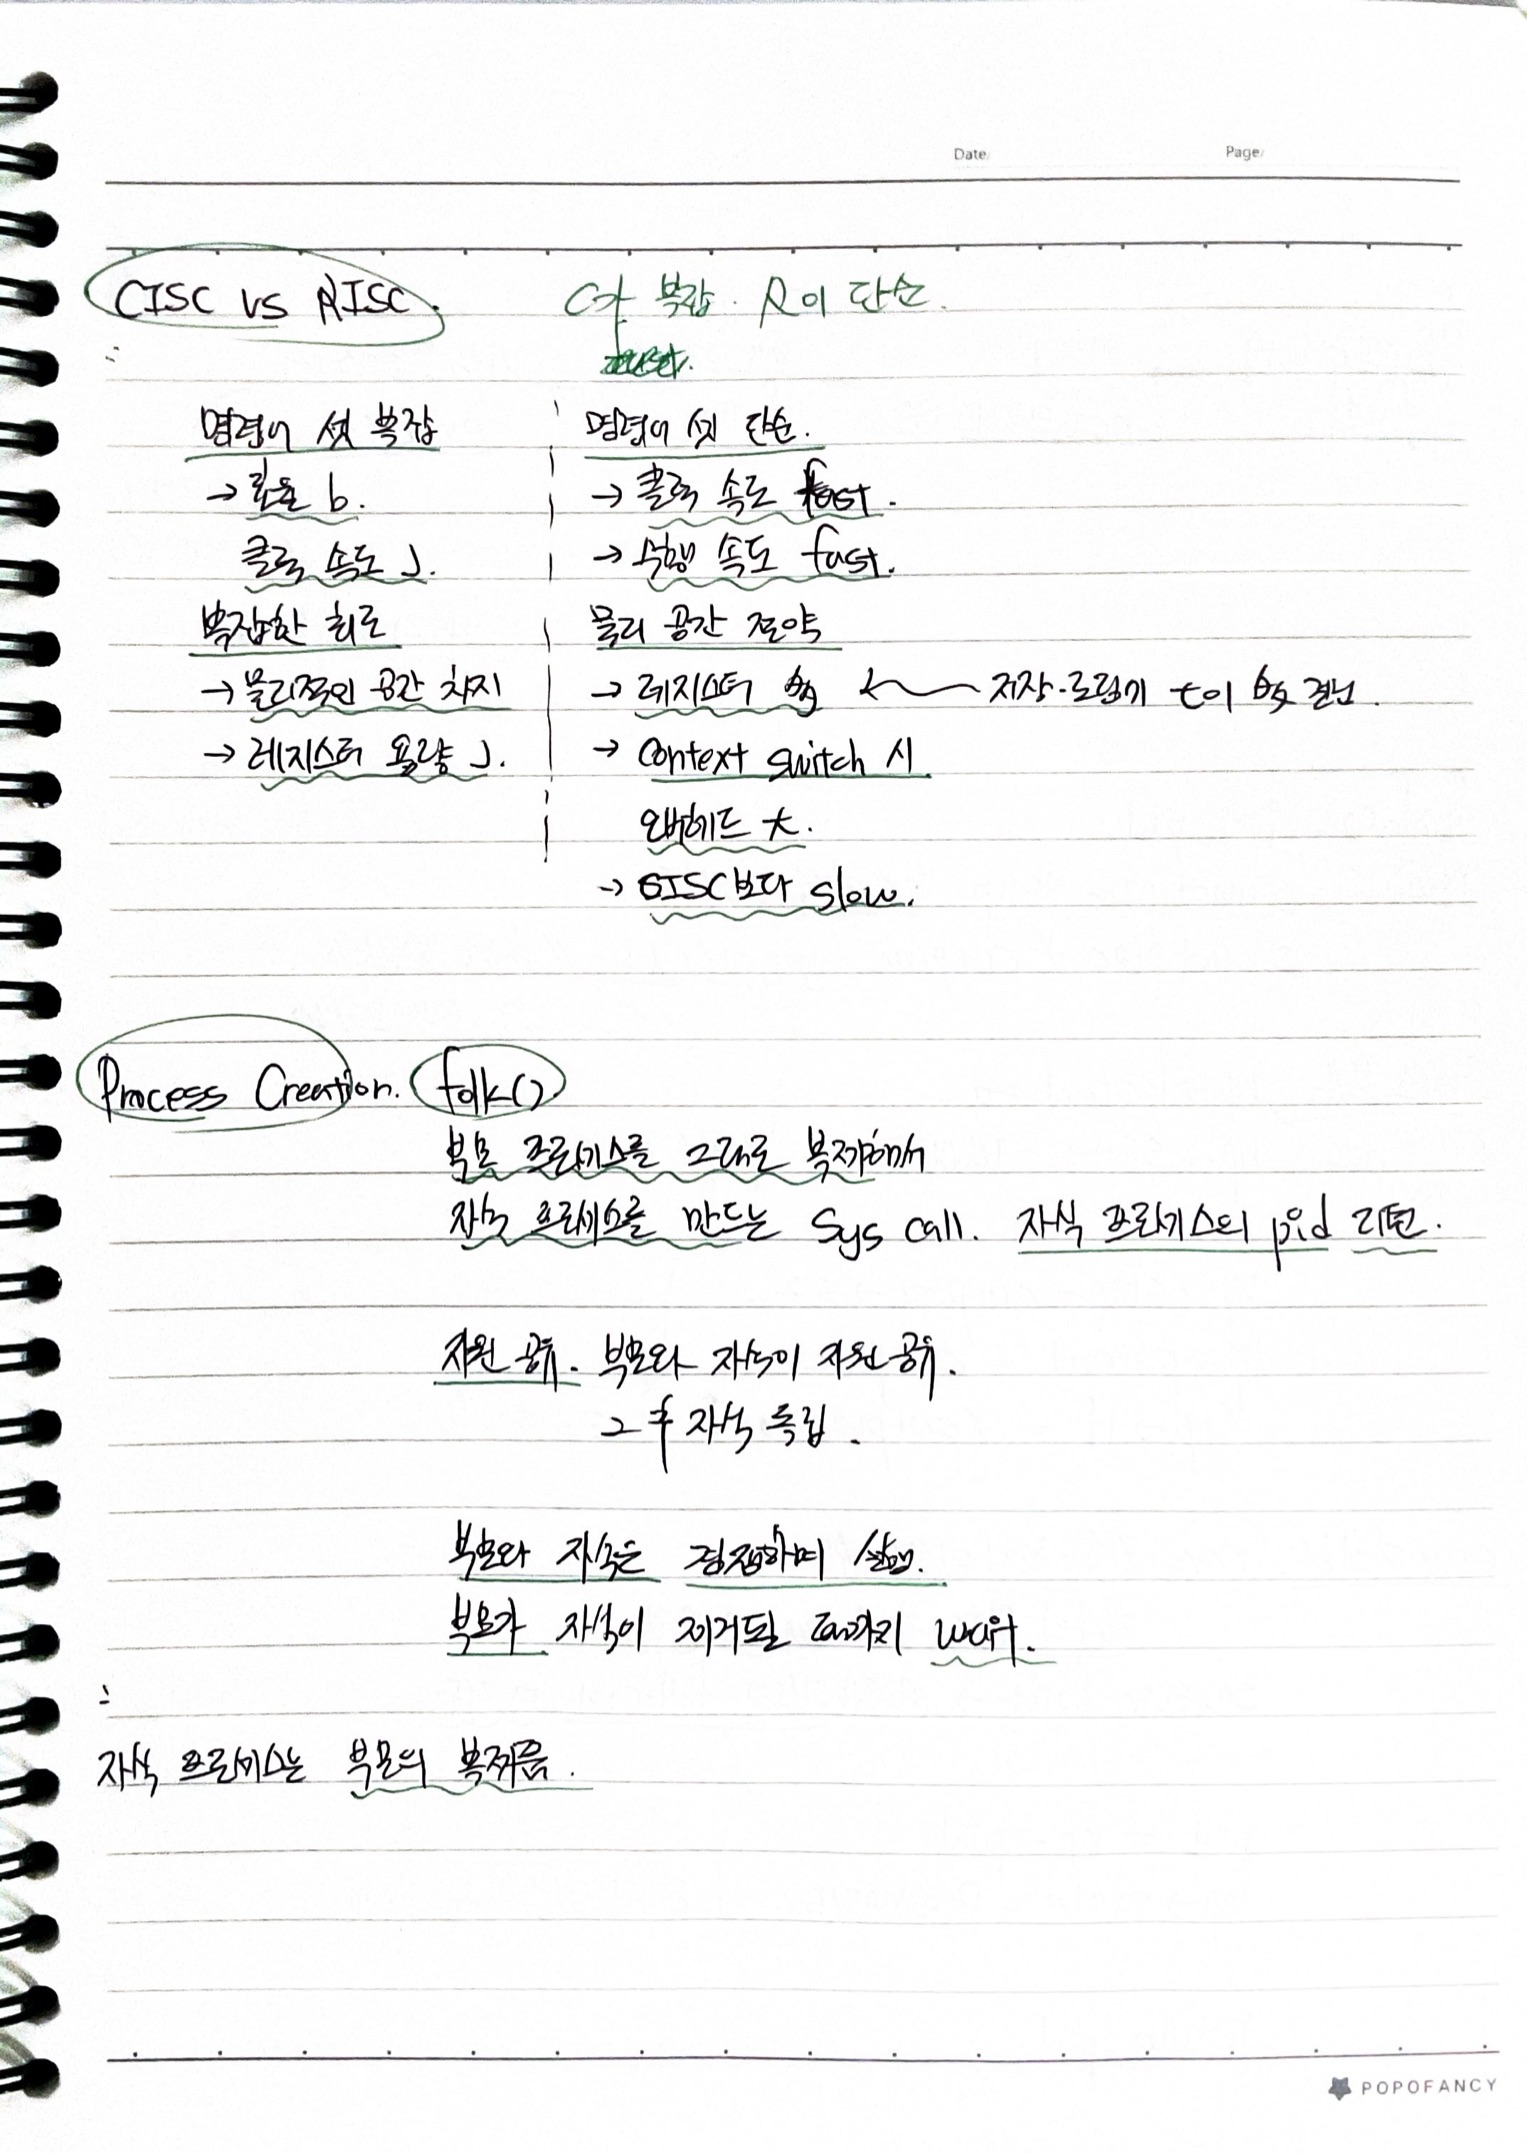 Date
Page
CISC vs RISC.
C가 복잡. R이 단순.
명령어 셋 복잡
→ 효율 b.
클럭 속도 J.
복잡한 회로
→ 물리적인 공간 차지
→ 레지스터 용량 J.
명령어 셋 단순.
→ 클럭 속도 fast.
→ 수행 속도 fast.
물리 공간 절약
→ 레지스터 多 ← 저장·로딩기 t이 多 걸님.
→ Context switch 시
오버헤드 大.
→ CISC보다 slow.
Process Creation. folk()
부모 프로세스를 그대로 복제해서
자식 프로세스를 만드는 Sys call. 자식 프로세스의 pid 리턴.
자원 공유. 부모와 자식이 자원 공유.
그 후 자식 독립.
부모와 자식은 경쟁하며 실행.
부모가 자식이 제거될 때까지 wait.
자식 프로세스는 부모의 복제품.
POPOFANCY